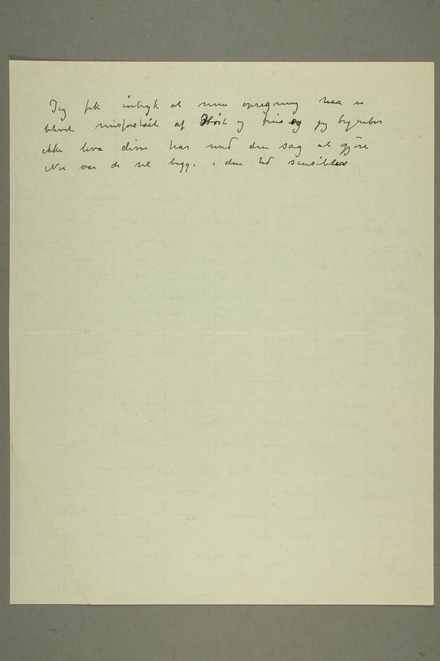 Jeg fik indtryk at min opregning maa
blevet misforstaaet af Høst og frue og jeg begriber
ikke hva disse har med den sag at gjøre
Nu var de vel begge i den tid sensible